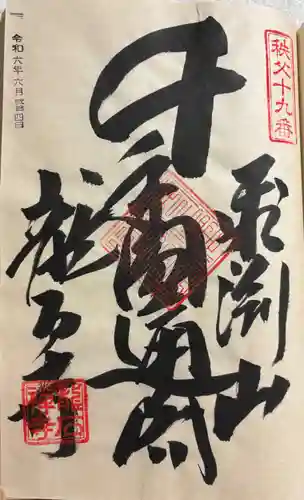 秩父十九番
飛淵山
千手圓通閣
龍石寺
令和六年六月廿四日